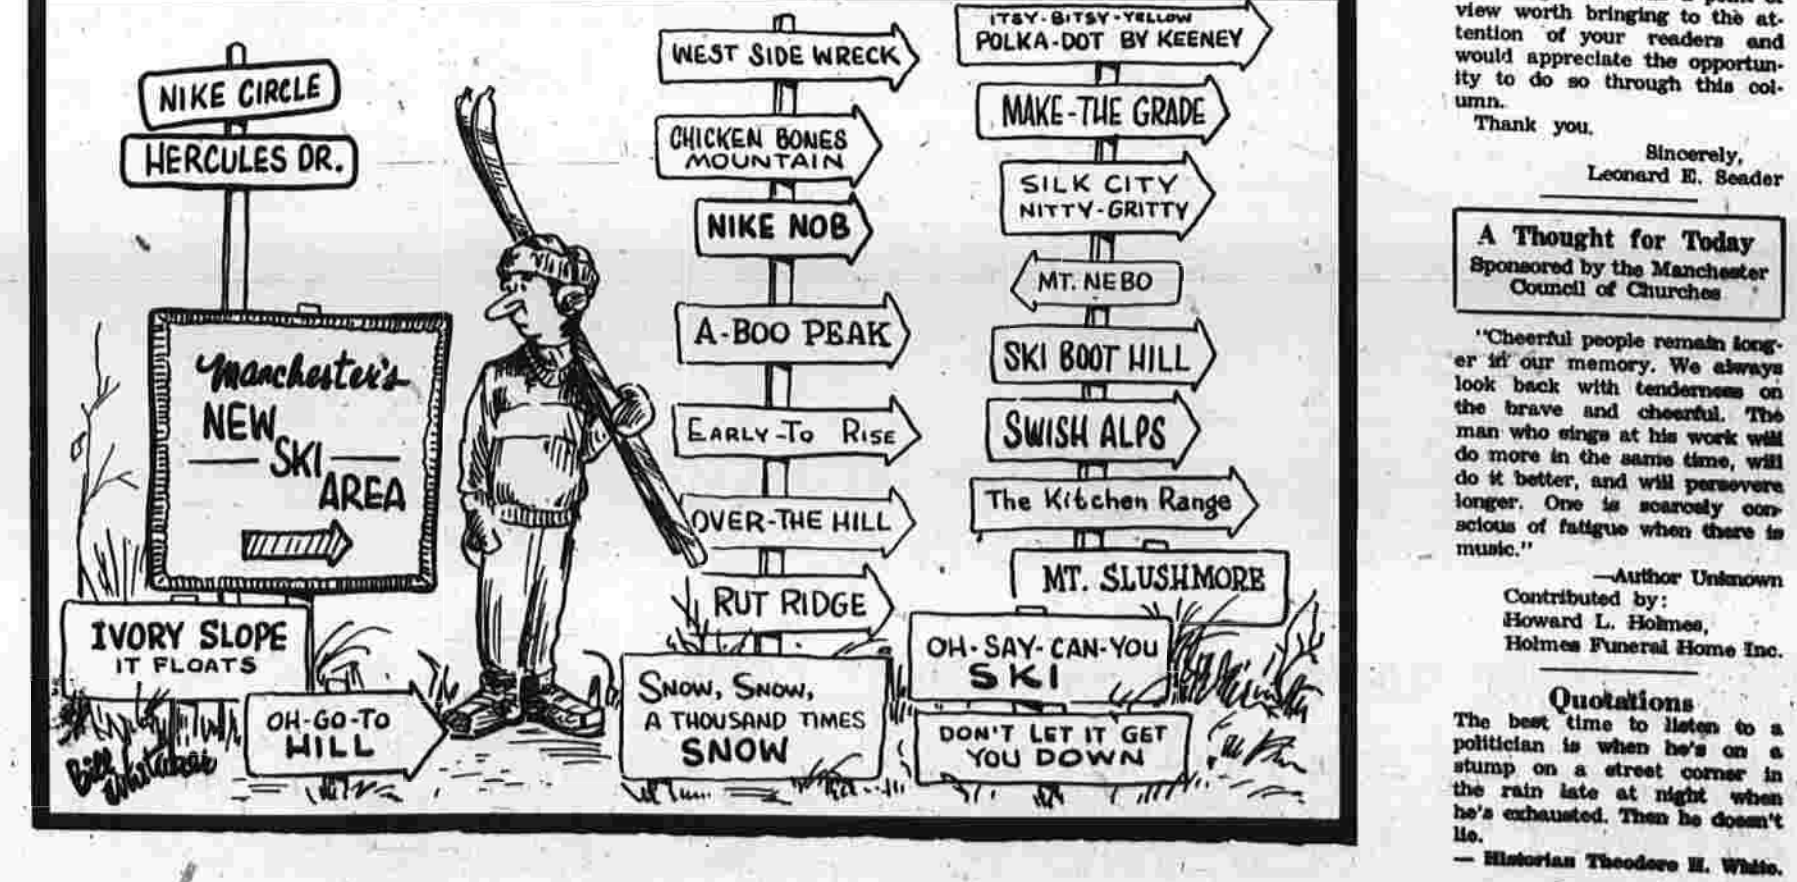 NIKE CIRCLE
HERCULES DR.
Manchester's
NEW
SKI
AREA
IVORY SLOPE
IT FLOATS
OH-GO-TO
HILL
Bill
Whitaker
WEST SIDE WRECK
CHICKEN BONES
MOUNTAIN
NIKE NOB
A-BOO PEAK
EARLY-TO RISE
OVER-THE HILL
RUT RIDGE
SNOW, SNOW,
A THOUSAND TIMES
SNOW
ITSY-BITSY-YELLOW
POLKA-DOT BY KEENEY
MAKE-THE GRADE
SILK CITY
NITTY-GRITTY
MT. NEBO
SKI BOOT HILL
SWISH ALPS
The Kitchen Range
MT. SLUSHMORE
OH-SAY-CAN-YOU
SKI
DON'T LET IT GET
YOU DOWN
view worth bringing to the at-
tention of your readers and
would appreciate the opportun-
ity to do so through this col-
umn.
Thank you.
Sincerely,
Leonard E. Seader
A Thought for Today
Sponsored by the Manchester
Council of Churches
"Cheerful people remain long-
er in our memory. We always
look back with tenderness on
the brave and cheerful. The
man who sings at his work will
do more in the same time, will
do it better, and will persevere
longer. One is scarcely con-
scious of fatigue when there is
music."
—Author Unknown
Contributed by:
Howard L. Holmes,
Holmes Funeral Home Inc.
Quotations
The best time to listen to a
politician is when he's on a
stump on a street corner in
the rain late at night when
he's exhausted. Then he doesn't
lie.
— Historian Theodore H. White.